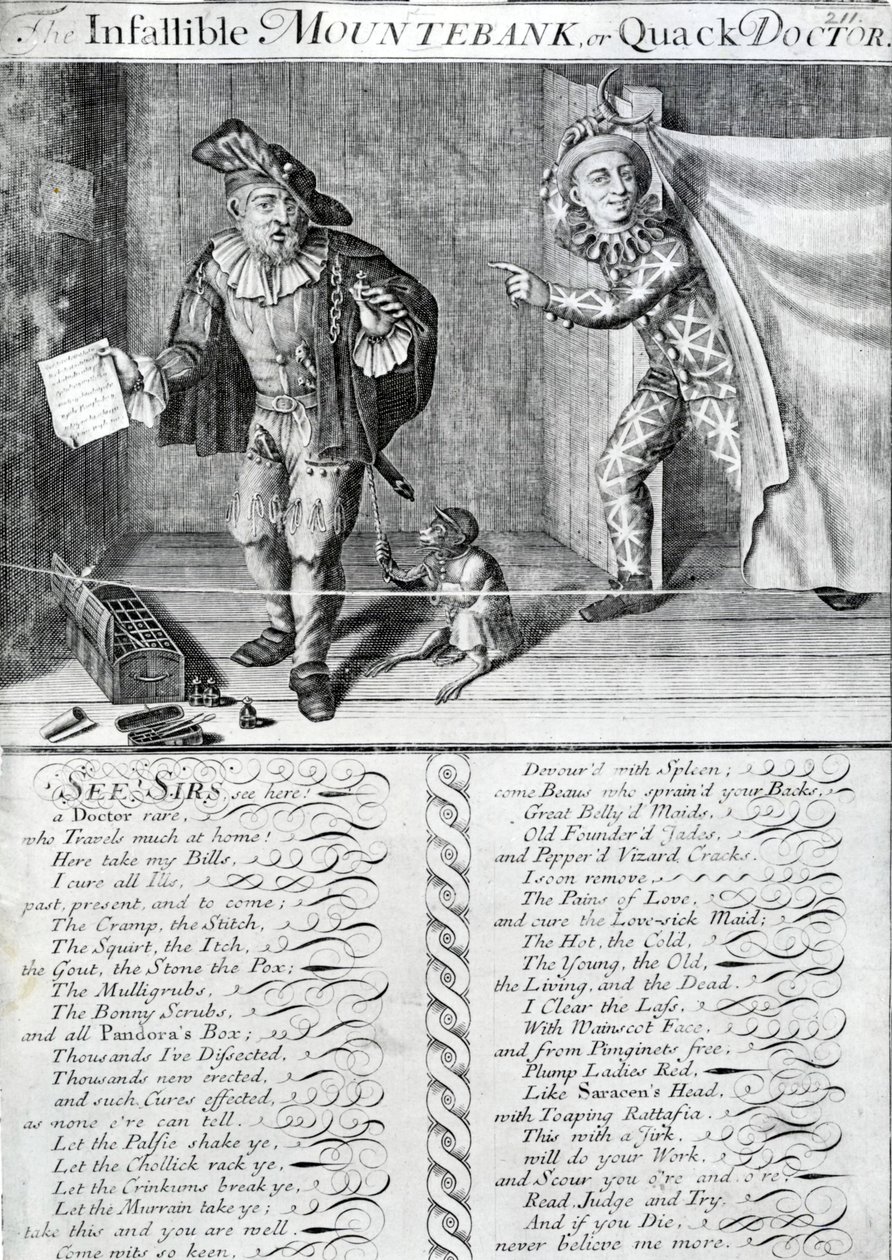 211.
The Infallible MOUNTEBANK, or Quack DOCTOR.
SEE, SIRS, see here!
a Doctor rare,
who Travels much at home!
Here take my Bills,
I cure all Ills,
past, present, and to come;
The Cramp, the Stitch,
The Squirt, the Itch,
the Gout, the Stone the Pox;
The Mulligrubs,
The Bonny Scrubs,
and all Pandora's Box;
Thousands I've Diſsected,
Thousands new erected,
and such Cures effected,
as none e're can tell.
Let the Palſie shake ye,
Let the Chollick rack ye,
Let the Crinkums break ye,
Let the Murrain take ye;
take this and you are well.
Come wits so keen,
Devour'd with Spleen;
come Beaus who sprain'd your Backs,
Great Belly'd Maids,
Old Founder'd Jades,
and Pepper'd Vizard Cracks.
I soon remove,
The Pains of Love,
and cure the Love-sick Maid;
The Hot, the Cold,
The Young, the Old,
the Living, and the Dead.
I Clear the Laſs,
With Wainscot Face,
and from Pimginets free;
Plump Ladies Red,
Like Saracen's Head,
with Toaping Rattafia.
This with a Jirk,
will do your Work,
and Scour you o're and o're,
Read, Judge and Try,
And if you Die,
never believe me more.